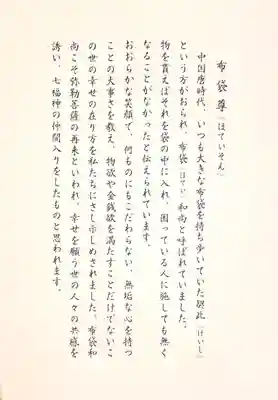 布袋尊［ほていそん］
中国唐時代、いつも大きな布袋を持ち歩いていた契此［けいし］
という方がおられ、布袋［ほてい］和尚と呼ばれていました。
物を貰えばそれを袋の中に入れ、困っている人に施しても無く
なることがなかったと伝えられています。
おおらかな笑顔で、何ものにもこだわらない、無垢な心を持つ
ことの大事さを教え、物欲や金銭欲を満たすことだけでないこ
の世の幸せの在り方を私たちにさし示しめされました。布袋和
尚こそ弥勒菩薩の再来といわれ、幸せを願う世の人々の共感を
誘い、七福神の仲間入りをしたものと思われます。